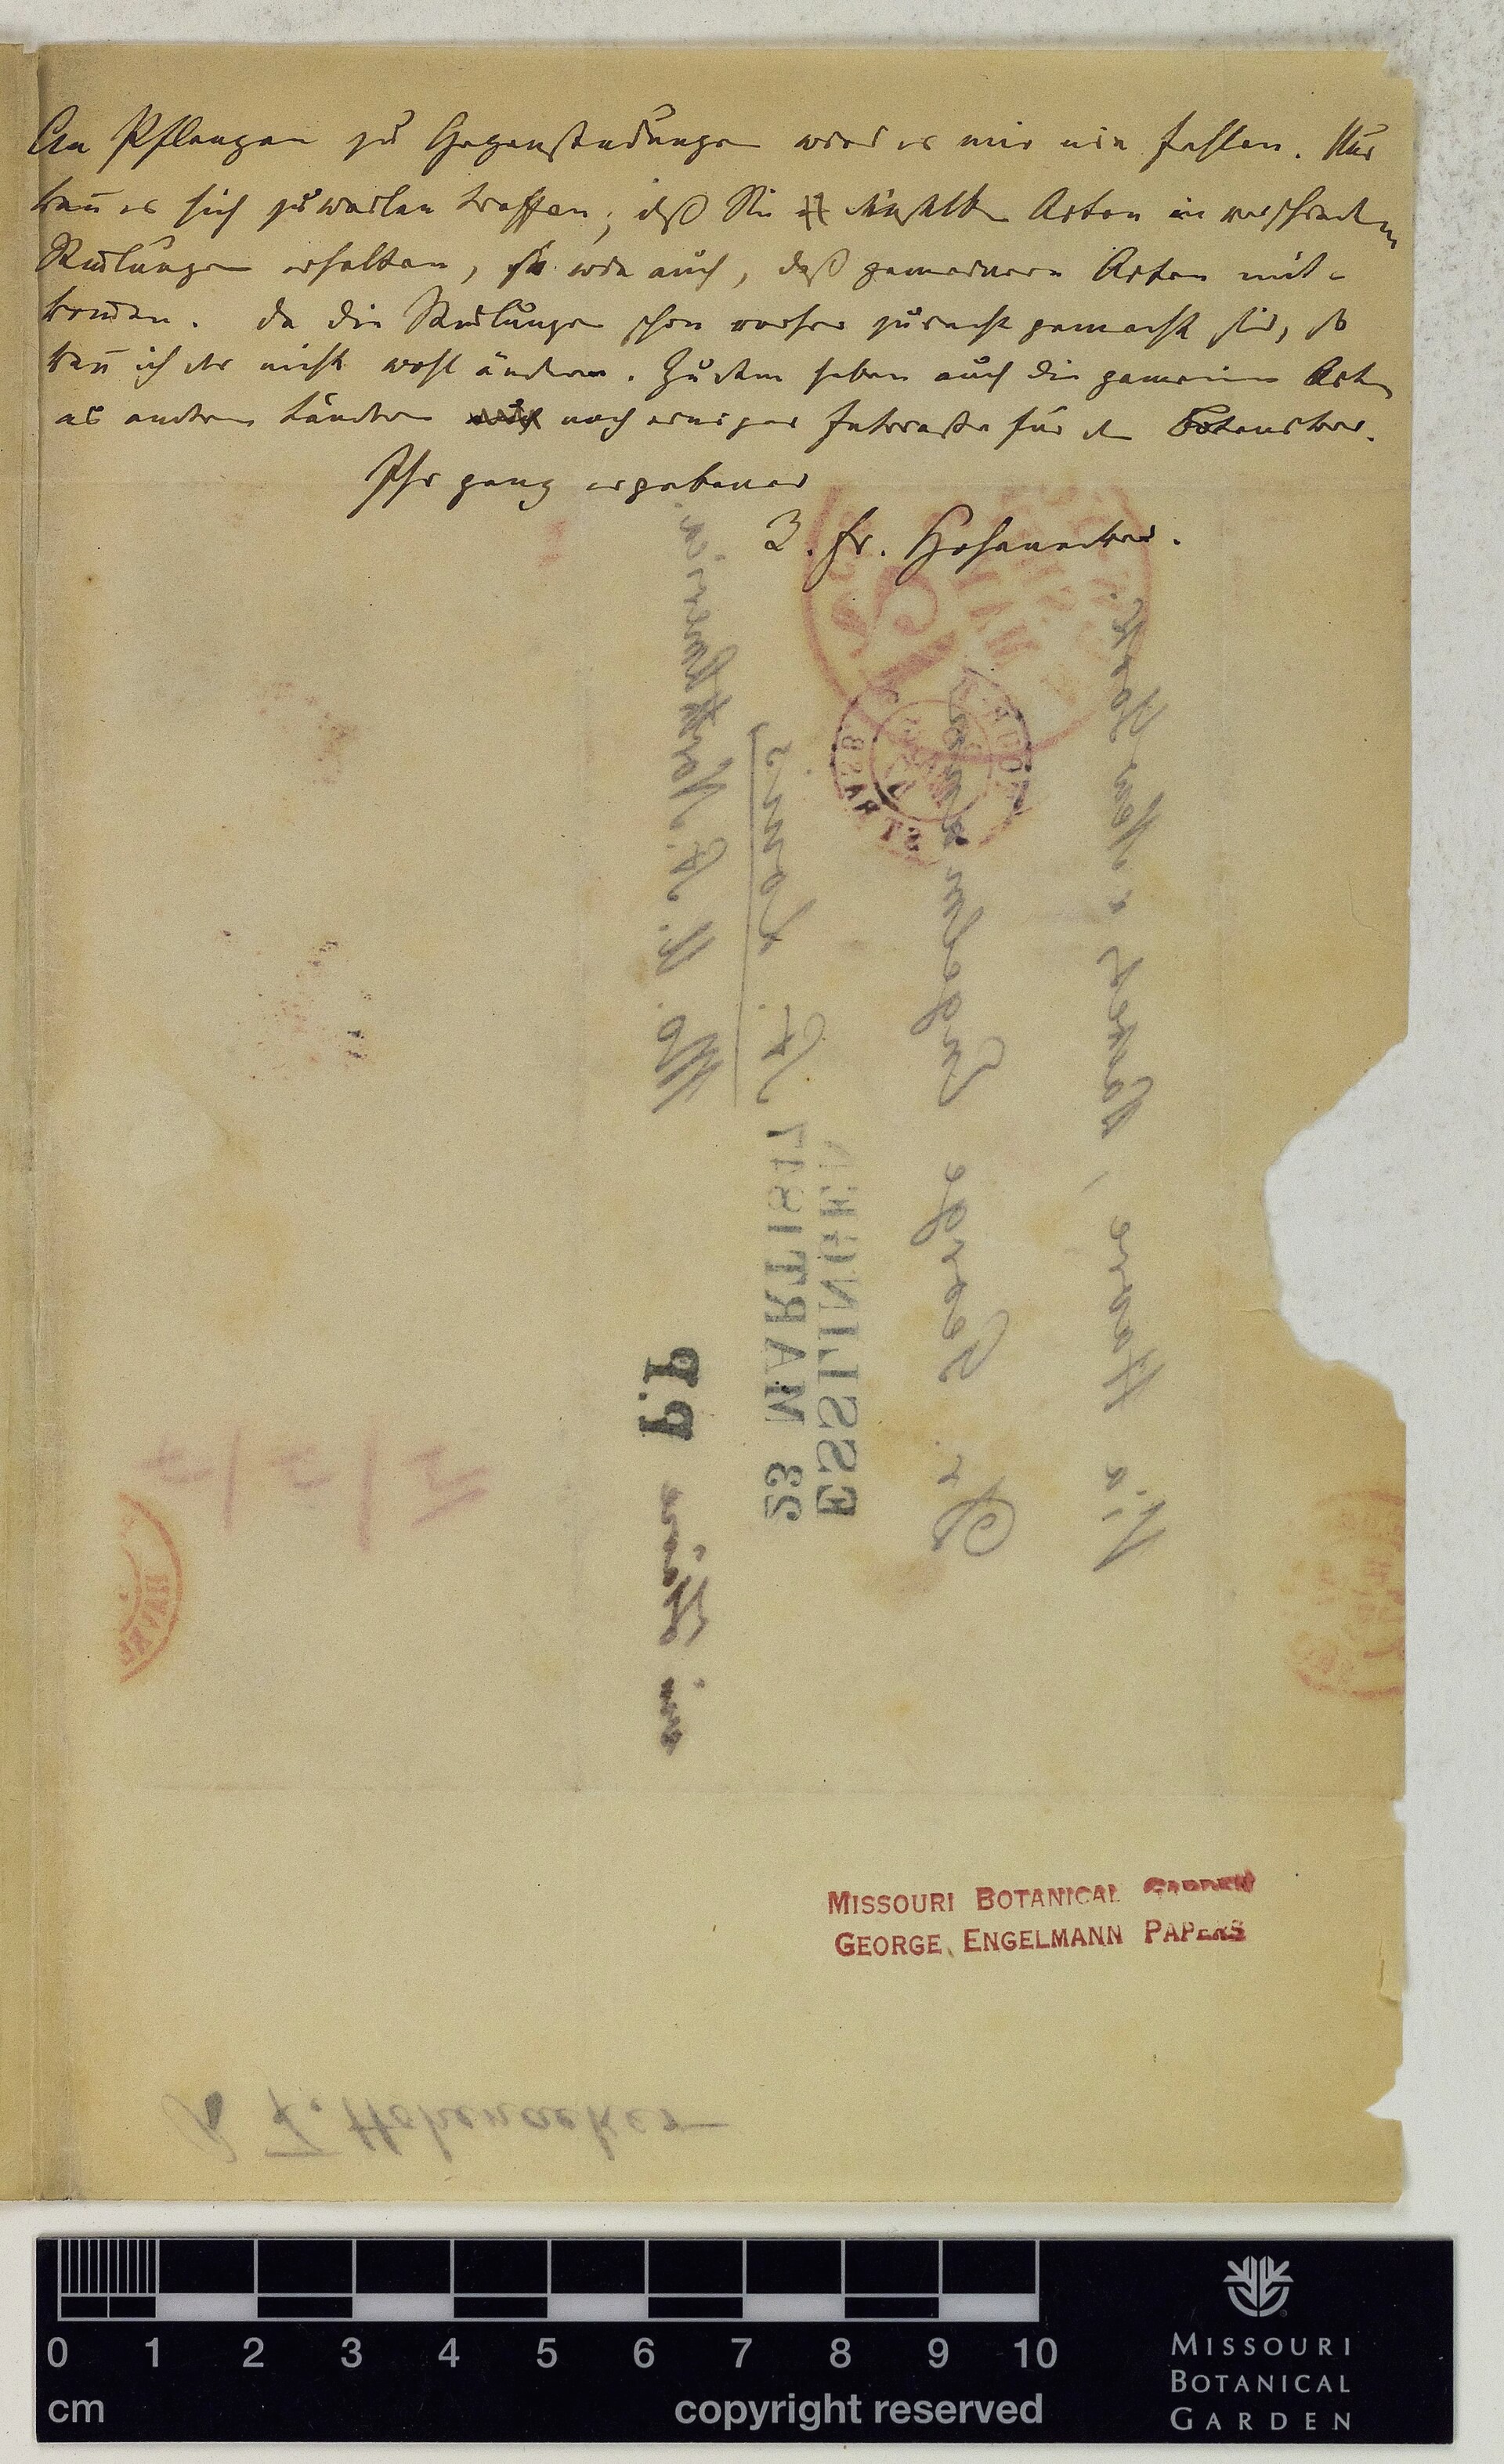 An Pflanzen zu Gegensendungen wird es mir nie fehlen. Nur
kann es sich zuweilen treffen, daß Sie dieselben Arten in verschiedenen
Sendungen erhalten, so wie auch, daß gemeinere Arten mit-
kommen. Da die Sendungen schon vorher zurecht gemacht sind, so
kann ich es nicht wohl ändern. Zudem haben auch die gemeinen Arten
aus andern Ländern noch einiges Interesse für den Botaniker.
Ihr ganz ergebener
R. Fr. Hohenacker.
Via Havre & New York.
Dr. George Engelmann
St. Louis
W. N. St. Nordamerica.
ESSLINGEN
23 MART 1847
P.P.
HAVRE
MISSOURI BOTANICAL GARDEN
GEORGE ENGELMANN PAPERS
R F. Hohenacker
0 1 2 3 4 5 6 7 8 9 10
cm copyright reserved
MISSOURI
BOTANICAL
GARDEN